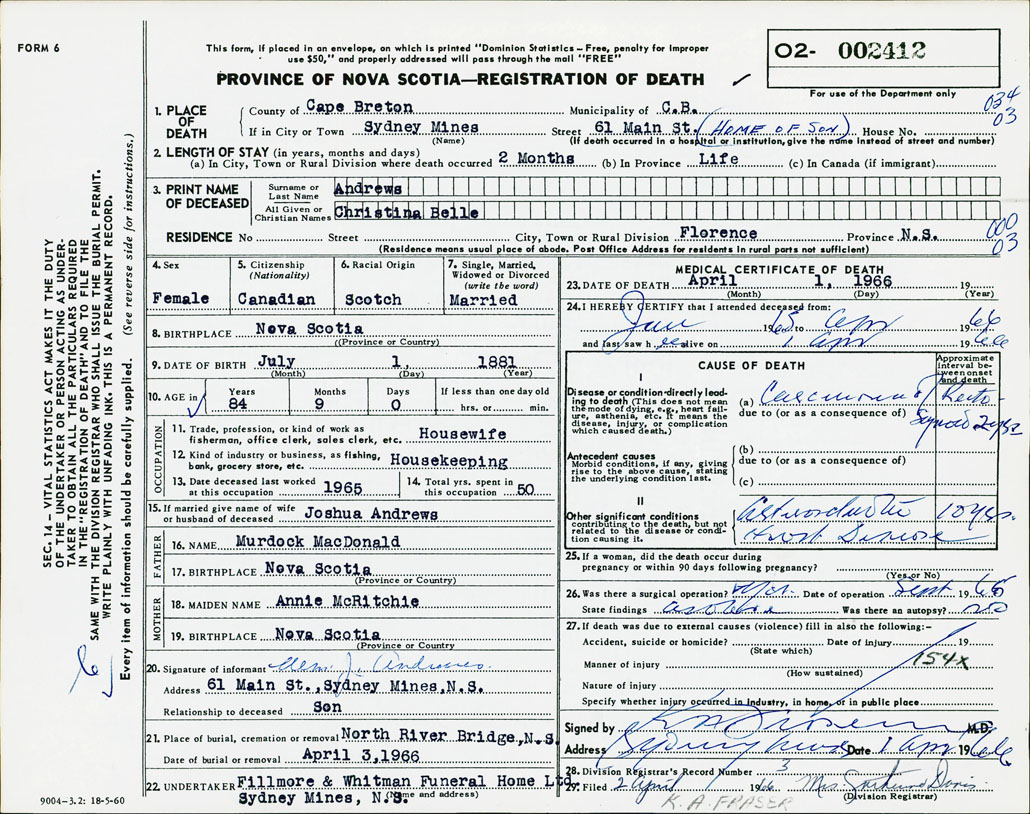 FORM 6
This form, if placed in an envelope, on which is printed "Dominion Statistics – Free, penalty for improper
use $50," and properly addressed will pass through the mail "FREE"
PROVINCE OF NOVA SCOTIA—REGISTRATION OF DEATH
O2- 002412
For use of the Department only
034
03
SEC. 14 – VITAL STATISTICS ACT MAKES IT THE DUTY
OF THE UNDERTAKER OR PERSON ACTING AS UNDER-
TAKER TO OBTAIN ALL THE PARTICULARS REQUIRED
IN THE "REGISTRATION OF DEATH" AND TO FILE THE
SAME WITH THE DIVISION REGISTRAR WHO SHALL ISSUE THE BURIAL PERMIT.
WRITE PLAINLY WITH UNFADING INK. THIS IS A PERMANENT RECORD.
Every item of information should be carefully supplied. (See reverse side for instructions.)
1. PLACE OF DEATH County of Cape Breton Municipality of C.B.
If in City or Town Sydney Mines Street 61 Main St. (HOME OF SON) House No.
(Name) (If death occurred in a hospital or institution, give the name instead of street and number)
2. LENGTH OF STAY (in years, months and days)
(a) In City, Town or Rural Division where death occurred 2 Months (b) In Province Life (c) In Canada (if immigrant)
3. PRINT NAME OF DECEASED Surname or Last Name Andrews
All Given or Christian Names Christina Belle
000
03
RESIDENCE No Street City, Town or Rural Division Florence Province N.S.
(Residence means usual place of abode. Post Office Address for residents in rural parts not sufficient)
4. Sex Female
5. Citizenship (Nationality) Canadian
6. Racial Origin Scotch
7. Single, Married, Widowed or Divorced (write the word) Married
8. BIRTHPLACE Nova Scotia
(Province or Country)
9. DATE OF BIRTH July 1, 1881
(Month) (Day) (Year)
10. AGE in Years 84 Months 9 Days 0 If less than one day old hrs. or min.
OCCUPATION
11. Trade, profession, or kind of work as fisherman, office clerk, sales clerk, etc. Housewife
12. Kind of industry or business, as fishing, bank, grocery store, etc. Housekeeping
13. Date deceased last worked at this occupation 1965
14. Total yrs. spent in this occupation 50
15. If married give name of wife or husband of deceased Joshua Andrews
FATHER
16. NAME Murdock MacDonald
17. BIRTHPLACE Nova Scotia
(Province or Country)
MOTHER
18. MAIDEN NAME Annie McRitchie
19. BIRTHPLACE Nova Scotia
(Province or Country)
20. Signature of informant J. Andrews
Address 61 Main St.,Sydney Mines,N.S.
Relationship to deceased Son
21. Place of burial, cremation or removal North River Bridge,N.S.
Date of burial or removal April 3,1966
22. UNDERTAKER Fillmore & Whitman Funeral Home Ltd.
Sydney Mines, N.S. (Name and address)
MEDICAL CERTIFICATE OF DEATH
23. DATE OF DEATH April 1, 1966 19
(Month) (Day) (Year)
24. I HEREBY CERTIFY that I attended deceased from:
Jan 1965 to Apr 1966
and last saw h er alive on 1 Apr 1966
CAUSE OF DEATH
Approximate interval between onset and death
I
Disease or condition directly leading to death (This does not mean the mode of dying, e.g., heart failure, asthenia, etc. It means the disease, injury, or complication which caused death.)
(a) Carcinoma of Recto-
due to (or as a consequence of) Sigmoid 2 yrs
Antecedent causes
Morbid conditions, if any, giving rise to the above cause, stating the underlying condition last.
(b)
due to (or as a consequence of)
(c)
II
Other significant conditions contributing to the death, but not related to the disease or condition causing it.
Heart Disease 10 yrs.
25. If a woman, did the death occur during
pregnancy or within 90 days following pregnancy?
(Yes or No)
26. Was there a surgical operation? yes. Date of operation Sept. 1965
State findings as above Was there an autopsy? no
27. If death was due to external causes (violence) fill in also the following:-
Accident, suicide or homicide? Date of injury 19
(State which)
154X
Manner of injury
(How sustained)
Nature of injury
Specify whether injury occurred in industry, in home, or in public place
Signed by M.D.
Address Sydney Mines Date 1 Apr 1966
28. Division Registrar's Record Number 3
29. Filed 2 April 1966 Mrs Gertrude Davis
(Division Registrar)
K. A. FRASER
9004-3.2: 18-5-60